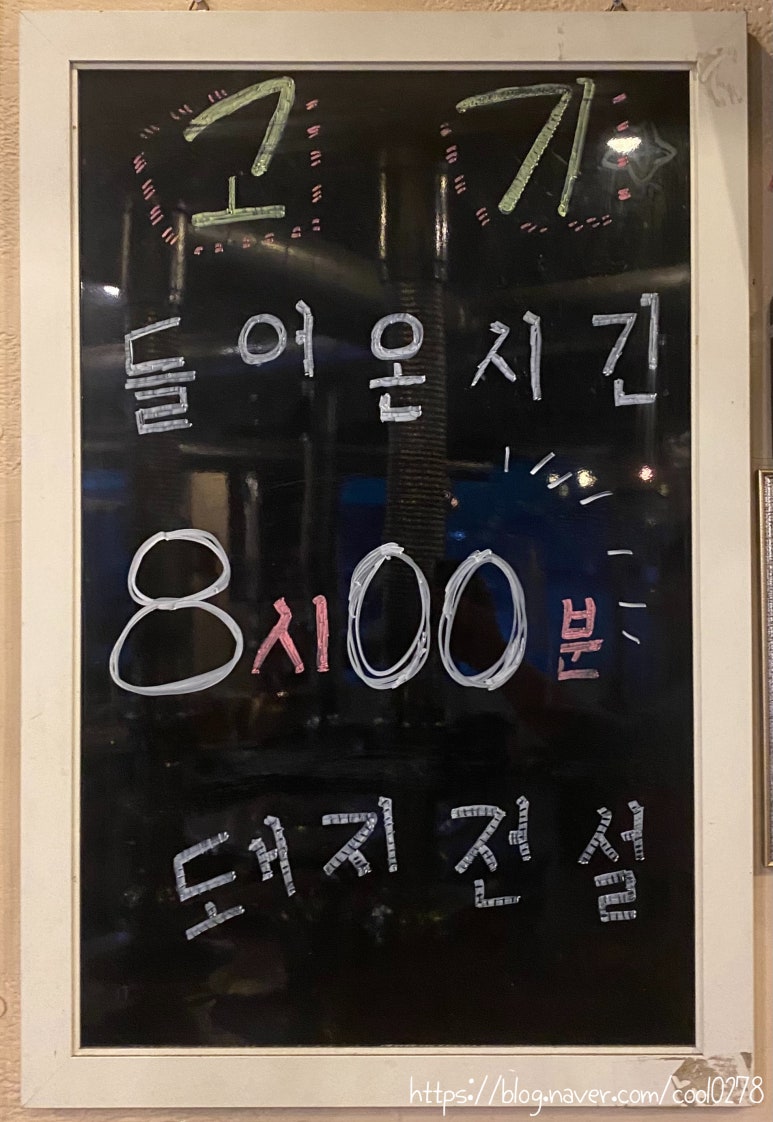 고기
들어온시간
8시00분
돼지전설
https://blog.naver.com/cool0278